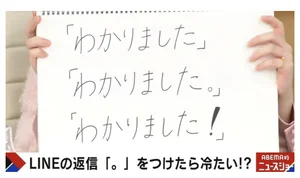 「わかりました」
「わかりました。」
「わかりました!」
LINEの返信「。」をつけたら冷たい!?
ABEMA的
ニュースショー